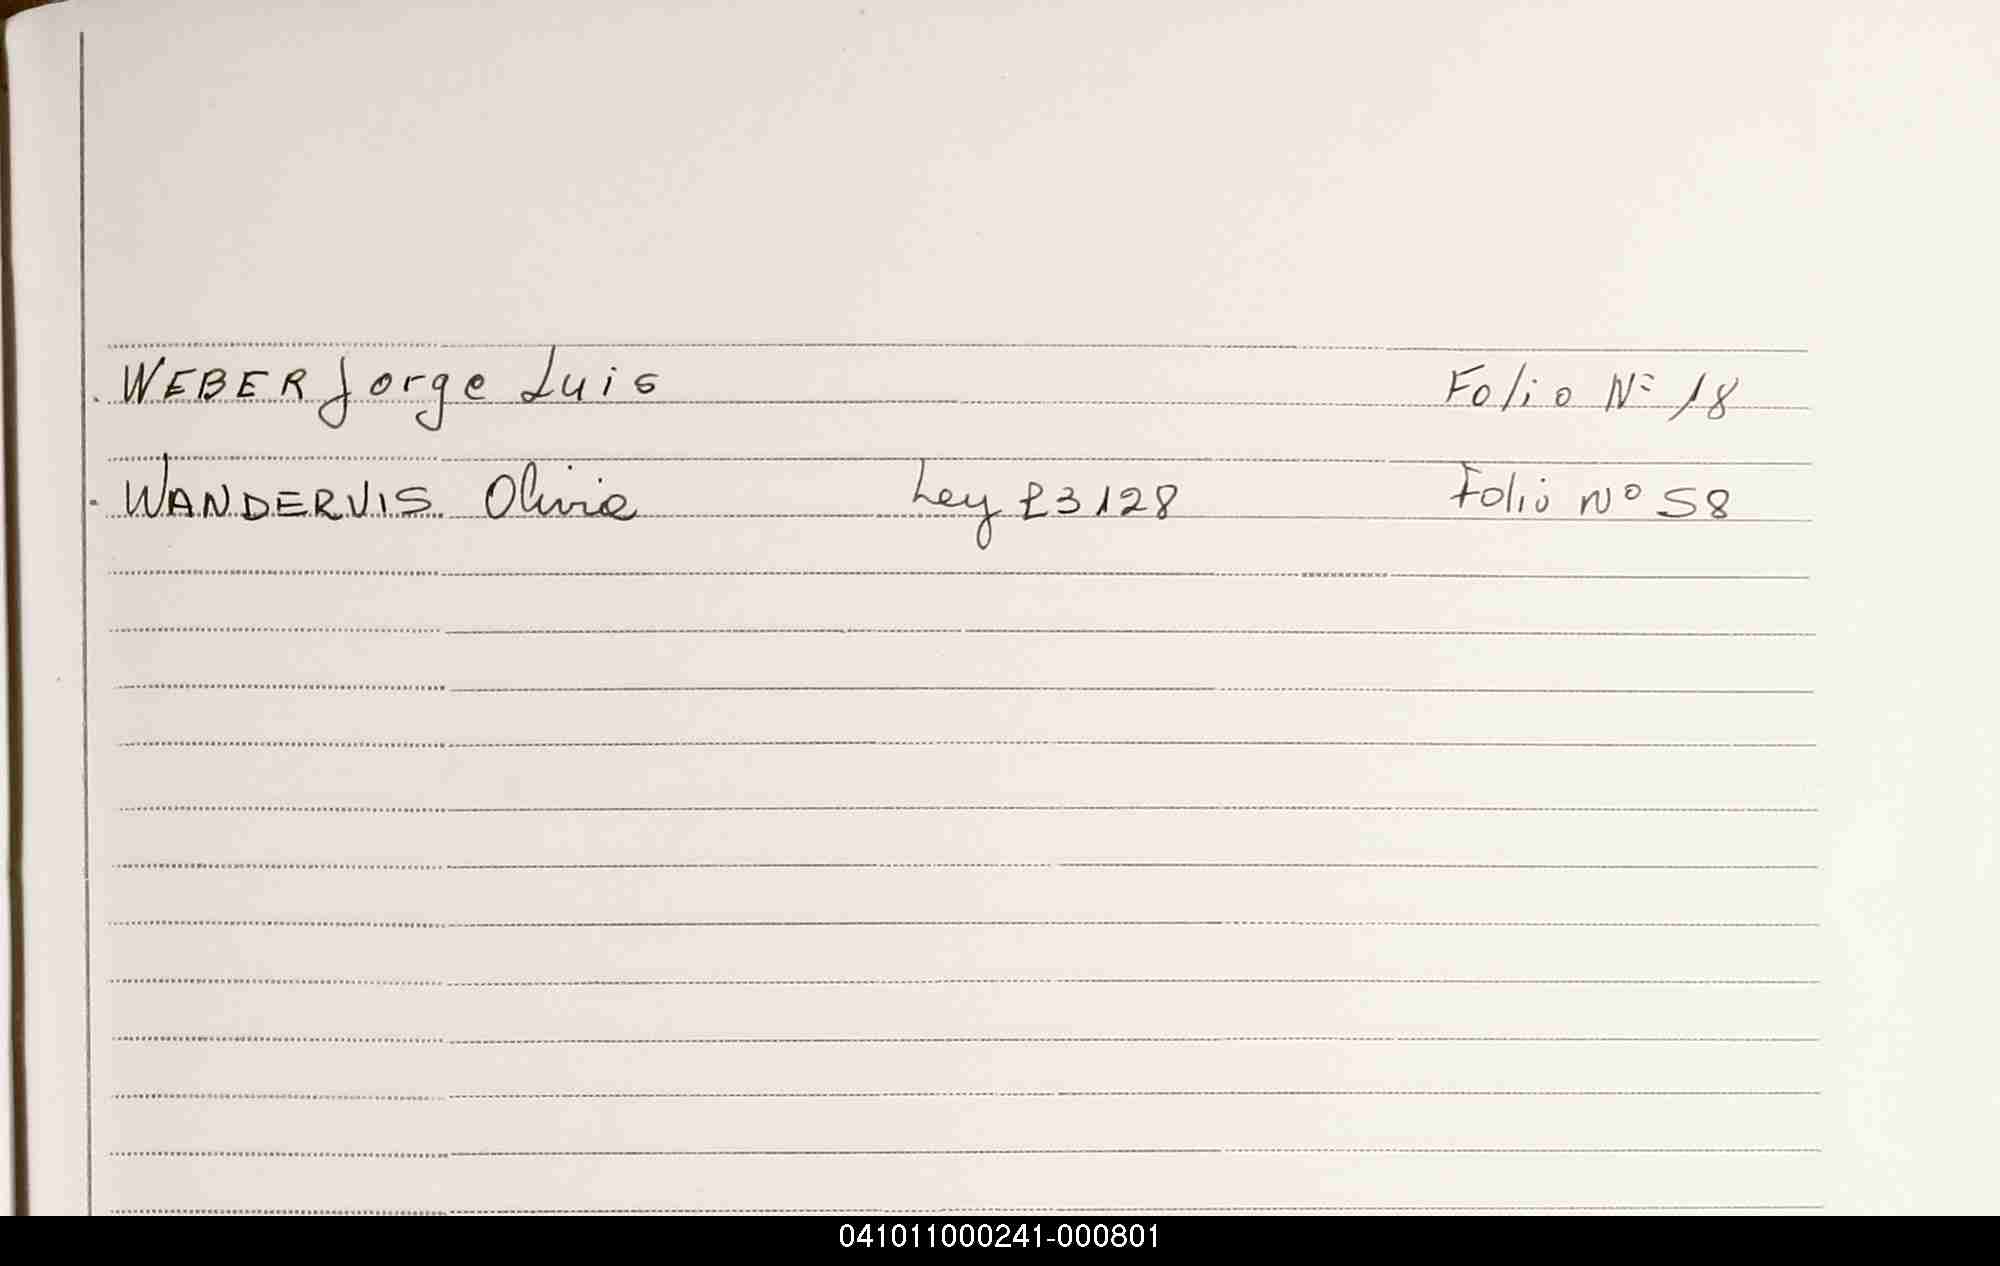 . WEBER Jorge Luis Folio Nº 18
- WANDERVIS Olivia Ley 23128 Folio Nº 58
041011000241-000801